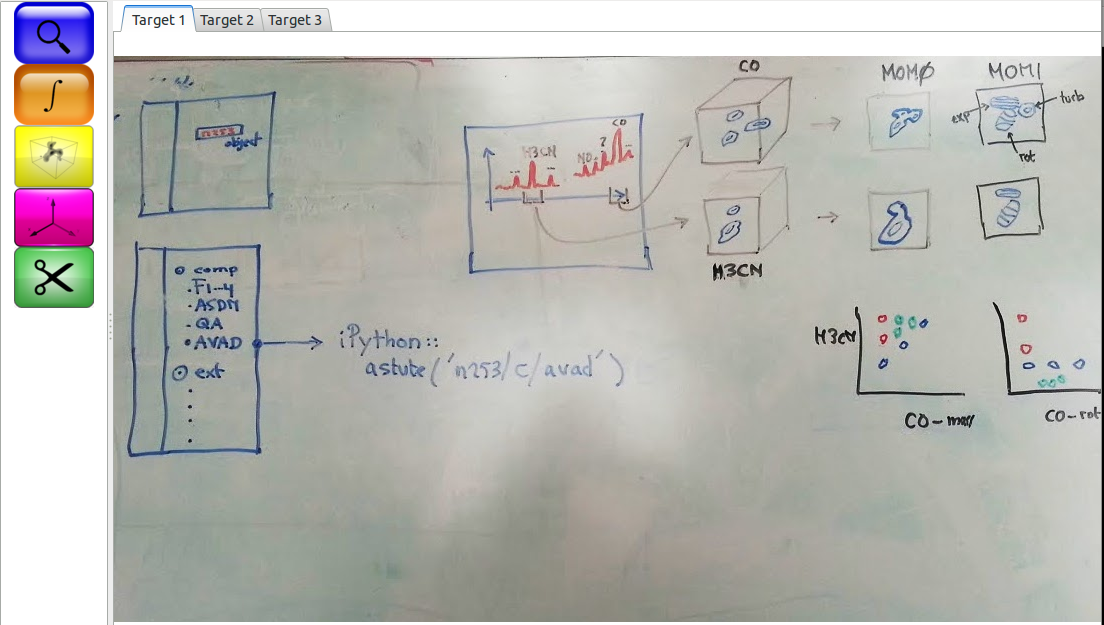 Target 1
Target 2
Target 3
object
H3CN
NO
?
CO
CO
H3CN
MOMØ
MOM1
exp
turb
rot
comp
.F1-4
.ASDM
.QA
.AVAD
ext
iPython::
astute('n253/c/avad')
H3CN
CO-mass
CO-rot